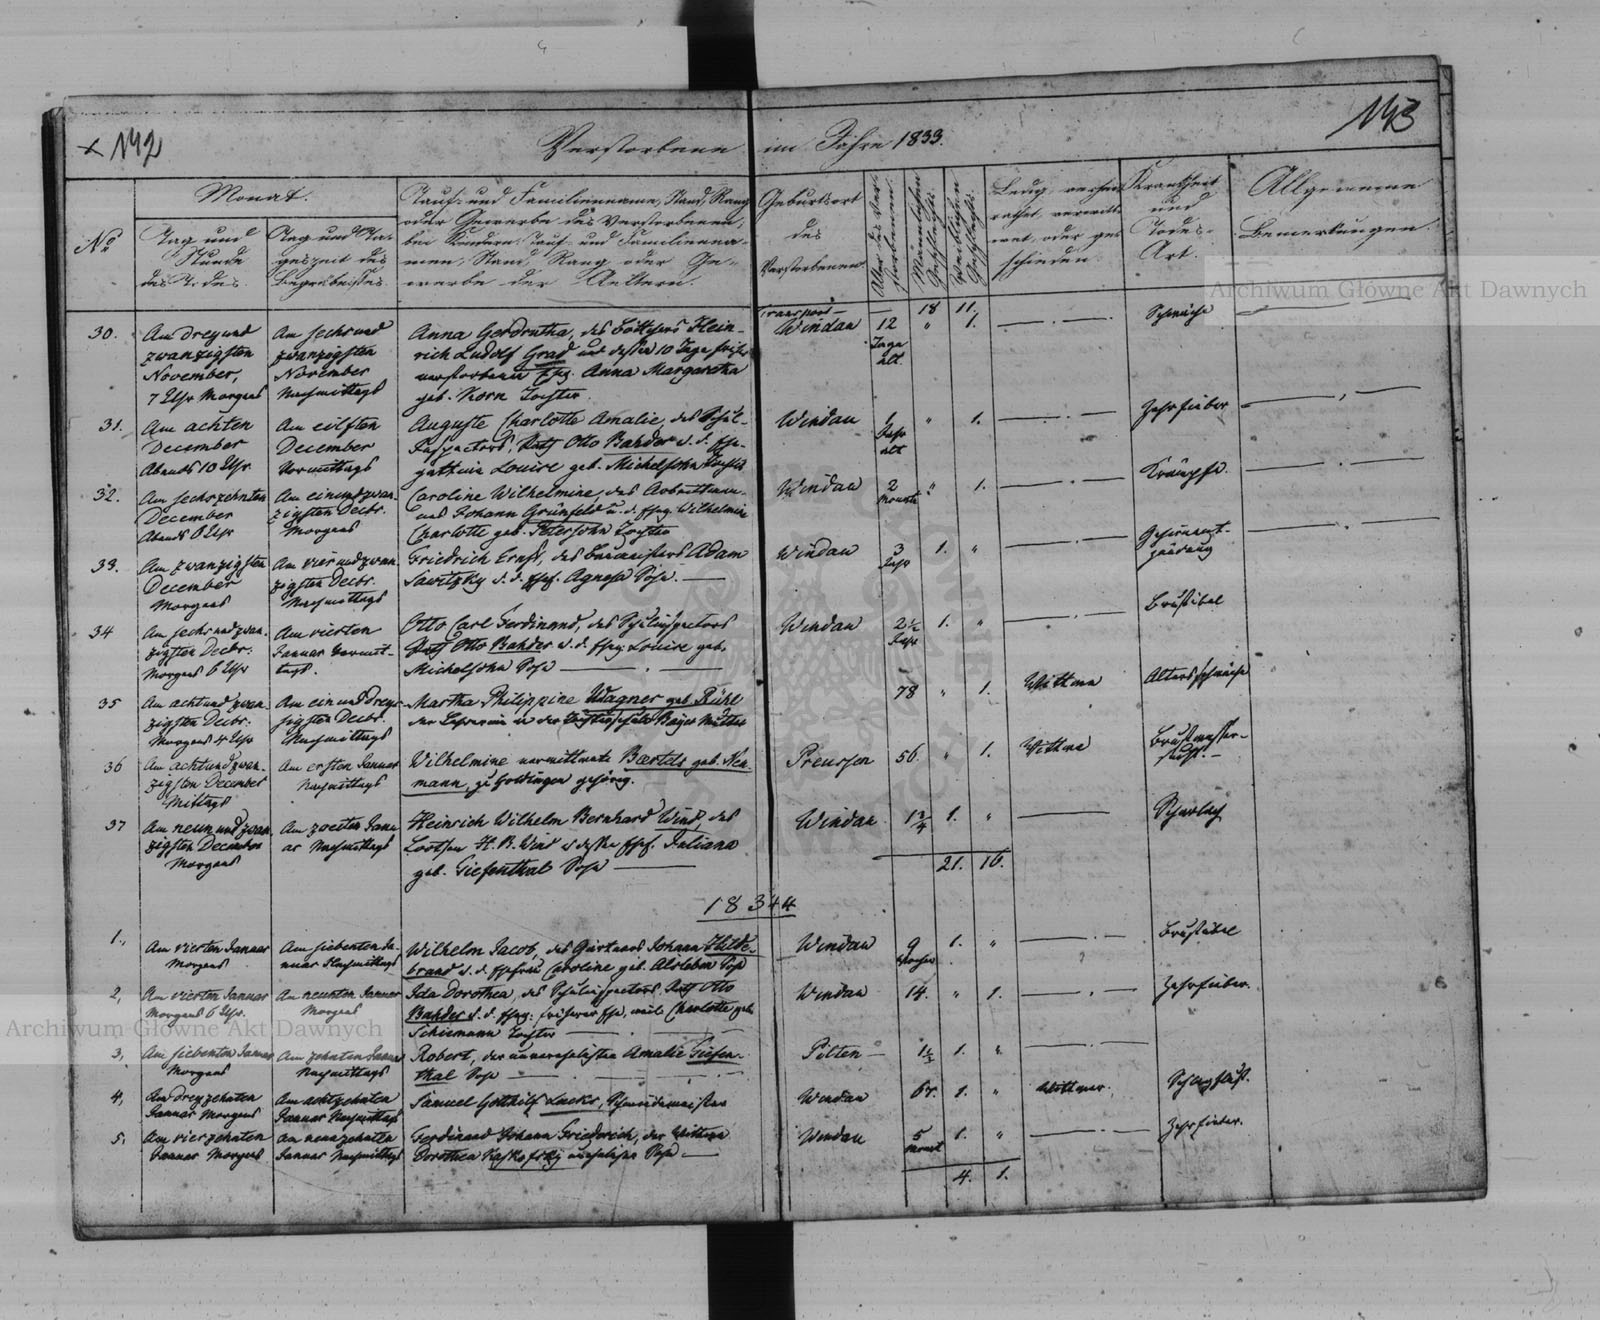 x 142
143
Verstorbene im Jahre 1833.
No
Monat.
Tag und
Stunde
des Todes.
Tag und Ta-
geszeit des
Begräbnisses.
Tauf- und Familienname, Stand, Rang
oder Gewerbe des Verstorbenen,
bei Kindern Tauf- und Familienna-
men, Stand, Rang oder Ge-
werbe der Aeltern.
Geburtsort
des
Verstorbenen.
Alter des Ver-
storbenen.
Männlichen
Geschlechts.
Weiblichen
Geschlechts.
Ledig, verhei-
rathet, verwitt-
wet, oder ge-
schieden.
Krankheit
und
Todes-
Art.
Allgemeine
Bemerkungen.
Archiwum Główne Akt Dawnych
Transport — — 18 11.
30.
Am drey und
zwanzigsten
November,
7 Uhr Morgens
Am sechs und
zwanzigsten
November
Nachmittags
Anna Gerdrutha, des Böttchers Hein-
rich Ludolf Grad und dessen 10 Tage früher
verstorbenen Ehg. Anna Margaretha
geb. Korn Tochter.
Windau
12
Tage
alt.
" 1.
Schwäche
31.
Am achten
December
Abends 10 Uhr
Am eilften
December
Vormittags
Auguste Charlotte Amalie, des Schul-
Inspectors, Otto Bahder u. d. Ehe-
gattin Louise geb. Michelsohn Tochter
Windau
1
Jahr
alt
" 1.
Zehrfieber
32.
Am sechszehnten
December
Abends 8 Uhr
Am einundzwan-
zigsten Decbr.
Morgens
Caroline Wilhelmine, des Arbeitsman-
nes Johann Grünfeld u. d. Ehg. Wilhelmine
Charlotte geb. Petersohn Tochter
Windau
2
Monate
" 1.
Krämpfe.
33.
Am zwanzigsten
December
Morgens
Am vier und zwan-
zigsten Decbr.
Nachmittags
Friedrich Ernst, des Adam
Sawitzky u. d. Ehef. Agnesa Sohn. —
Windau
3
Jahr
1. "
Gehirnent-
zündung
34
Am sechs und zwan-
zigsten Decbr.
Morgens 6 Uhr
Am vierten
Januar Vormit-
tags.
Otto Carl Ferdinand, des Schulinspectors
Otto Bahder u. d. Ehg. Louise geb.
Michelsohn Sohn
Windau
2½
Jahr
1. "
Brustübel
35
Am acht und zwan-
zigsten Decbr.
Morgens 4 Uhr
Am ein und dreys-
sigsten Decbr.
Nachmittags
Martha Philippine Wagner geb. Rühl
der Lehrerin in der Töchterschule Mutter
78
" 1.
Wittwe
Altersschwäche
36
Am acht und zwan-
zigsten December
Mittags
Am ersten Januar
Nachmittags
Wilhelmine verwittwete Bartels geb. Neu-
mann, zu Goldingen gehörig.
Preussen
56.
" 1.
Wittwe
Brustwasser-
sucht. —
37
Am neun und zwan-
zigsten December
Morgens
Am zweiten Janu-
ar Nachmittags
Heinrich Wilhelm Bernhard Wind, des
Lootsen H. B. Wind u dessen Ehef. Juliana
geb. Giefenthal Sohn
Windau
1¾
1. "
Scharlach
21. 16.
1834
1.,
Am vierten Januar
Morgens
Am siebenten Ja-
nuar Nachmittags
Wilhelm Jacob, des Gärtners Johann Hilde-
brand u. d. Ehefrau Caroline geb. Alsleben Sohn
Windau
9
Wochen
1. "
Brustübel
2,
Am vierten Januar
Morgens 6 Uhr.
Am neunten Januar
Morgens
Ida Dorothea, des Schulinspectors Otto
Bahder u. d. Ehg. früherer Ehe, weil. Charlotte geb.
Schiemann Tochter
Windau
14.
" 1.
Zehrfieber.
Archiwum Główne Akt Dawnych
3,
Am siebenten Januar
Morgens
Am zehnten Januar
Nachmittags
Robert, der unverehelichten Amalie Giefen-
thal Sohn
Pilten —
1½
1. "
4,
Am dreyzehnten
Januar Morgens
Am achtzehnten
Januar Nachmittags
Samuel Gotthilf Lucks, Schmiedemeister
Windau
1. "
Wittwer.
Schlagfluß.
5.
Am vierzehnten
Januar Morgens
Am neunzehnten
Januar Nachmittags
Ferdinand Johann Friedrich, der Wittwe
Dorothea unehelicher Sohn —
Windau
5
Monat
1. "
Zehrfieber.
4. 1.